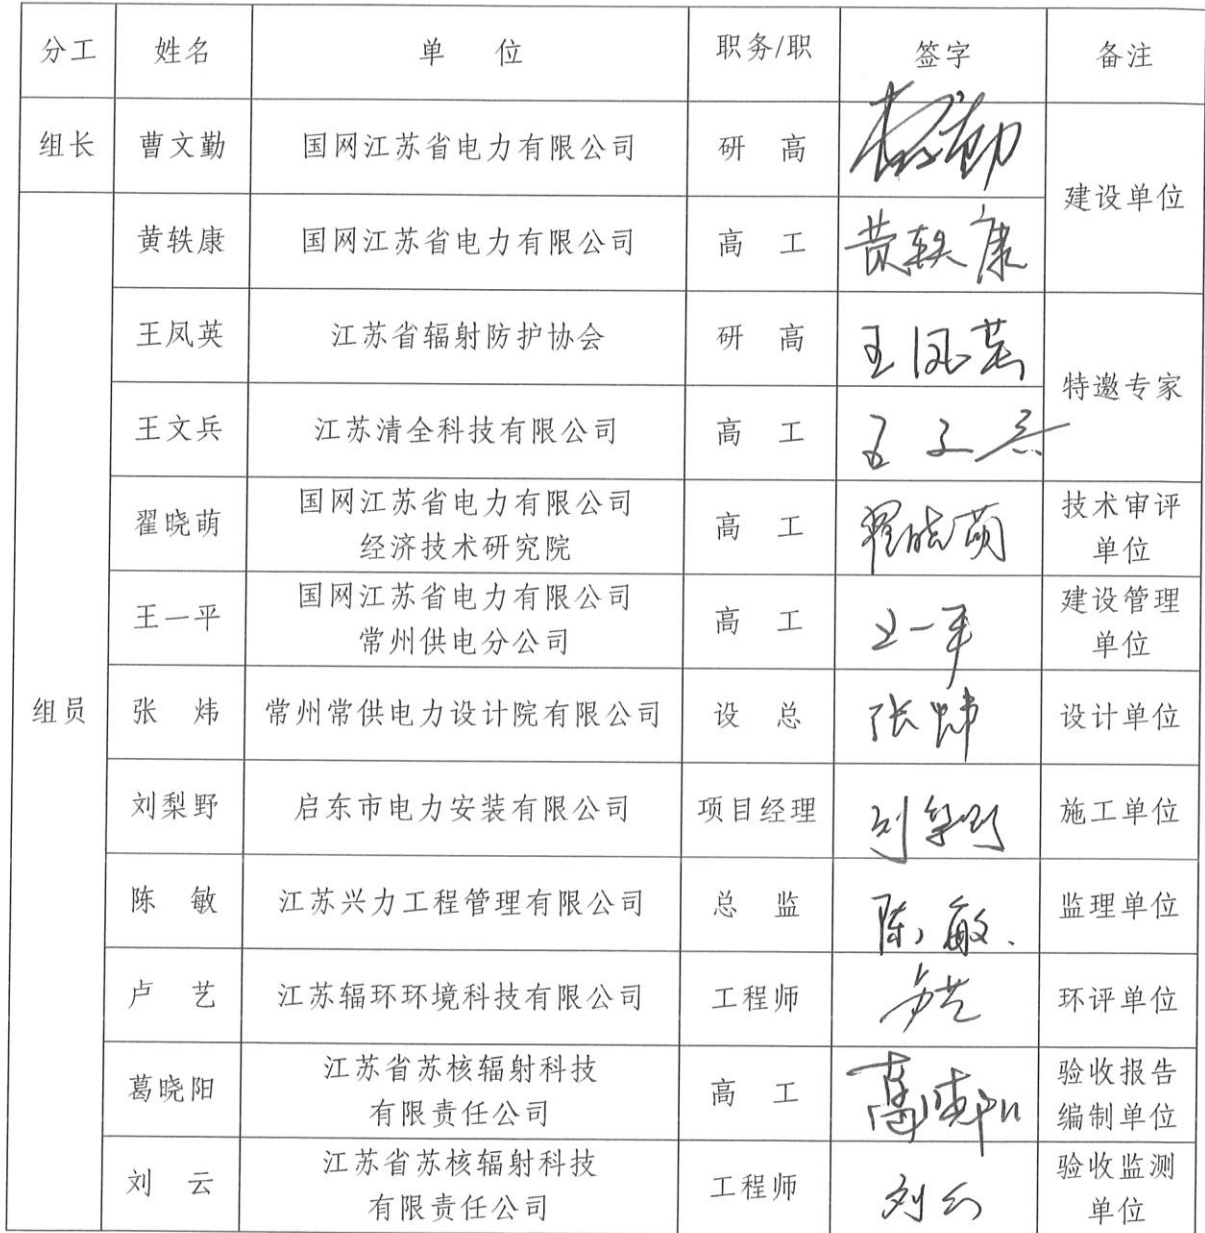 分工 姓名 单 位 职务/职 签字 备注
组长 曹文勤 国网江苏省电力有限公司 研 高 建设单位
组员
黄轶康 国网江苏省电力有限公司 高 工 黄轶康
王凤英 江苏省辐射防护协会 研 高 王凤英 特邀专家
王文兵 江苏清全科技有限公司 高 工 王文兵
翟晓萌 国网江苏省电力有限公司 高 工 翟晓萌 技术审评
经济技术研究院 单位
王一平 国网江苏省电力有限公司 高 工 王一平 建设管理
常州供电分公司 单位
张 炜 常州常供电力设计院有限公司 设 总 张炜 设计单位
刘梨野 启东市电力安装有限公司 项目经理 刘梨野 施工单位
陈 敏 江苏兴力工程管理有限公司 总 监 陈敏 监理单位
卢 艺 江苏辐环环境科技有限公司 工程师 卢艺 环评单位
葛晓阳 江苏省苏核辐射科技 高 工 葛晓阳 验收报告
有限责任公司 编制单位
刘 云 江苏省苏核辐射科技 工程师 刘云 验收监测
有限责任公司 单位